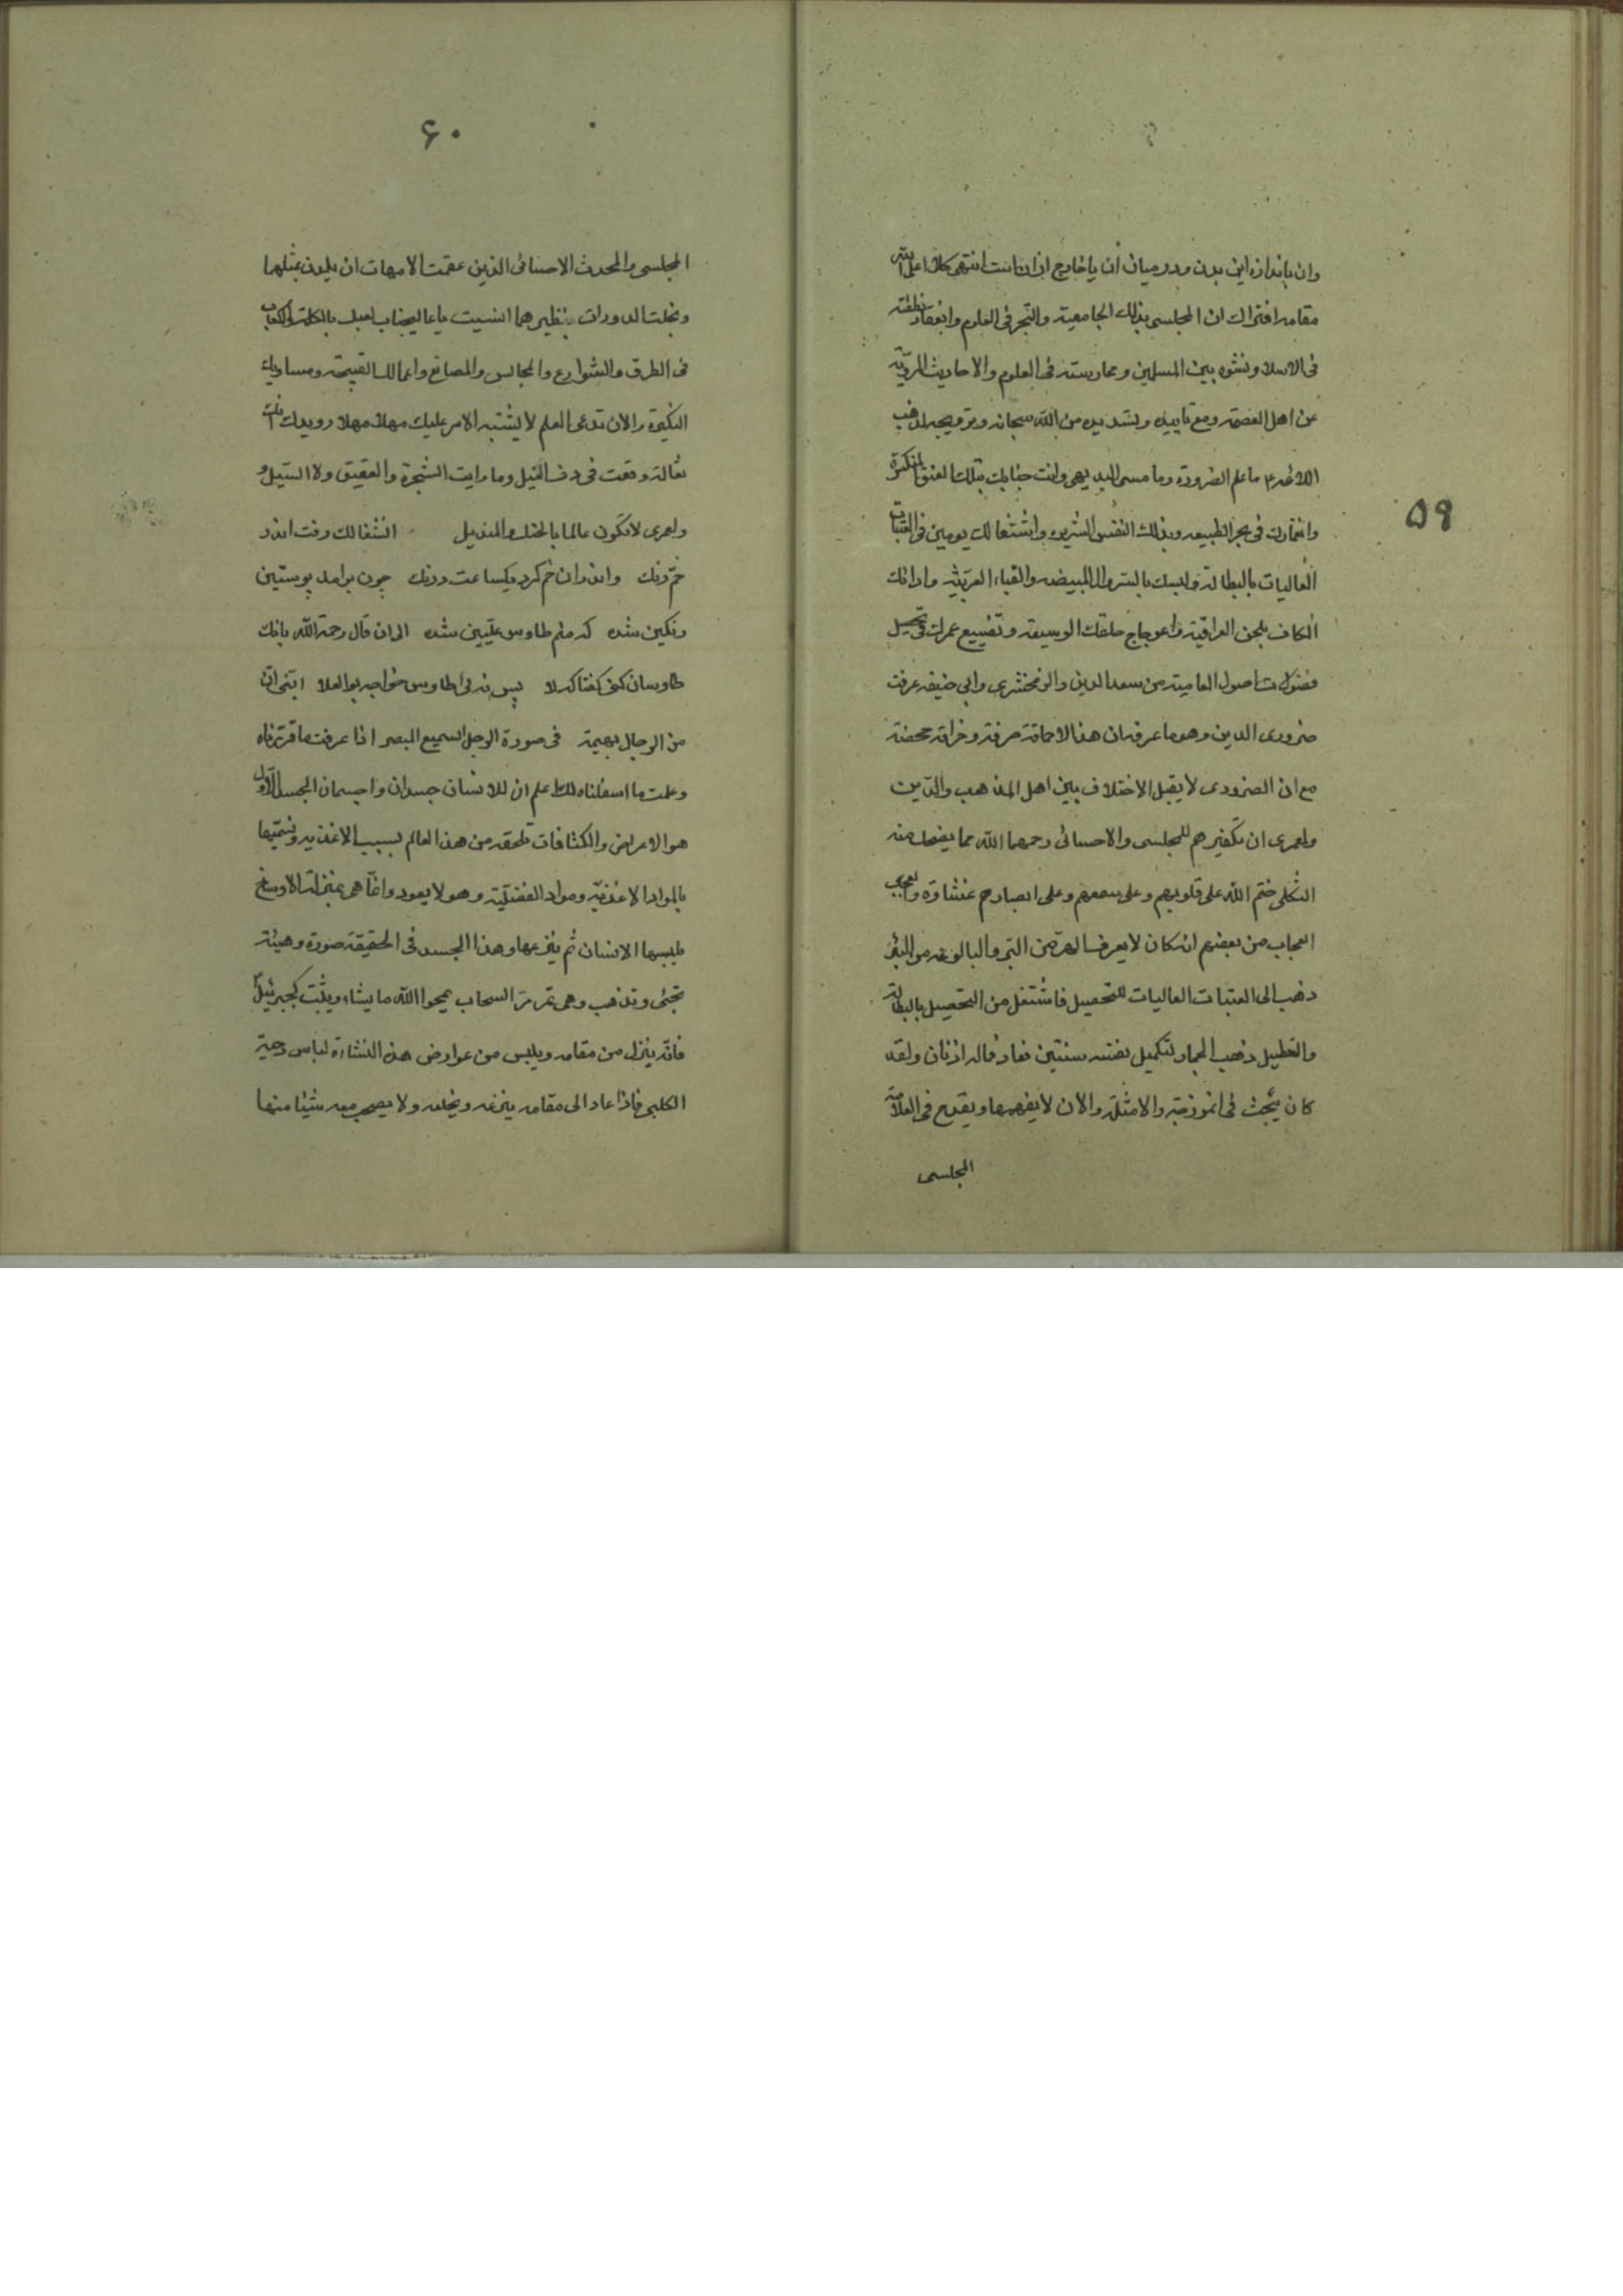 ۵۹
وان باندازه این بدن ودر میان ان یا خارج از ان است انتهی کلامه اعلی الله
مقامه افتراك ان المجلسی بذلك الجامعیة والتبحر فی العلوم وانعقاد نطفته
فی الاسلام ونشوه بین المسلمین وممارسته فی العلوم والاحادیث المرویة
عن اهل العصمة ومع تاییده وتسدیده من الله سبحانه وترویجه لمذهب
الائمه ع ما علم الضرورة وما مس البدیهی وانت جنابك بتلك العنق المنکرة
وانغمارك فی بحر الطبیعه وبذلك النفس الشریره واشتغالك یومین فی العتبات
العالیات بالبطالة ولبسك بالسروال المبیضه والقباء العربیه وادائك
الکاف بلحن العراقیة واعوجاج حلقك الوسیعة وتضییع عمرك فی تحصیل
فضولات اصول العامیة من سعد الدین والزمخشری وابی حنیفه عرفت
ضروری الدین وهو ما عرف ان هذا الا حماقة صرفة وخرافة محضة
مع ان الضروری لا یقبل الاختلاف بین اهل المذهب والدین
ولعمری ان تکفیرهم للمجلسی والاحسائی رحمهما الله مما یضحك منه
الثکلی ختم الله علی قلوبهم وعلی سمعهم وعلی ابصارهم غشاوة والعجب
العجاب من بعضهم انه کان لا یعرف الهر من البر والبالوعه من البئر
ذهب الی العتبات العالیات للتحصیل فاشتغل من التحصیل بالبطالة
والتعطیل ذهب الحمار لتکمیل نفسه سنتین فعاد وماله اذنان ولقد
کان یبحث فی انموذجیة والامثلة والان لا یفهمها ویقدح فی العلامة
المجلسی
۶۰
المجلسی والمحدث الاحسائی الذین عقمت الامهات ان یلدن بمثلهما
وبخلت الدورات بنظیرهما انسیت یا عالیجناب لعبك بالکلة والکعاب
فی الطرق والشوارع والمجالس والمصانع واعمالك القبیحة ومساویك
النکیرة والان تدعی العلم لا یشتبه الامر علیك مهلا مهلا رویدك
ثعالة وقعت فی دن النیل وما رایت الشجرة والعقیق ولا السیل و
ولعمری لا تکون عالما بالحنك والمندیل انشغالك رفت اندر
خم رنك واندران خم کرد یکساعت درنك چون برامد پوستین
رنکین شده که منم طاوس علیین شده الی ان قال رحمة الله بانك
طاوسان کنی کفتا که لا پس نه ئی طاوس خواجه بوالعلا ابنی ان
من الرجال بهیمة فی صورة الرجل السمیع المبصر اذا عرفت ما قررناه
وعلمت ما اسفلناه لك اعلم ان للانسان جسدان واجسمان الجسد الاول
هو الاعراض والکثافات تلحقه من هذا العالم بسبب الاغذیه ونسمیها
بالمواد الاغذیة ومواد الفضلیة وهو لا یعود وانما هی بمنزلة الاوساخ
یلبسها الانسان ثم ینزعها وهذا الجسد فی الحقیقة صورة وهیئة
تجئی وتذهب وهی تمر مر السحاب یمحوا الله ما یشاء ویثبت کجبرئیل
فانه ینزل من مقامه ویلبس من عوارض هذه النشاءة لباس دحیة
الکلبی فاذا عاد الی مقامه ینزعه ویخلعه ولا یصحب معه شیئا منها